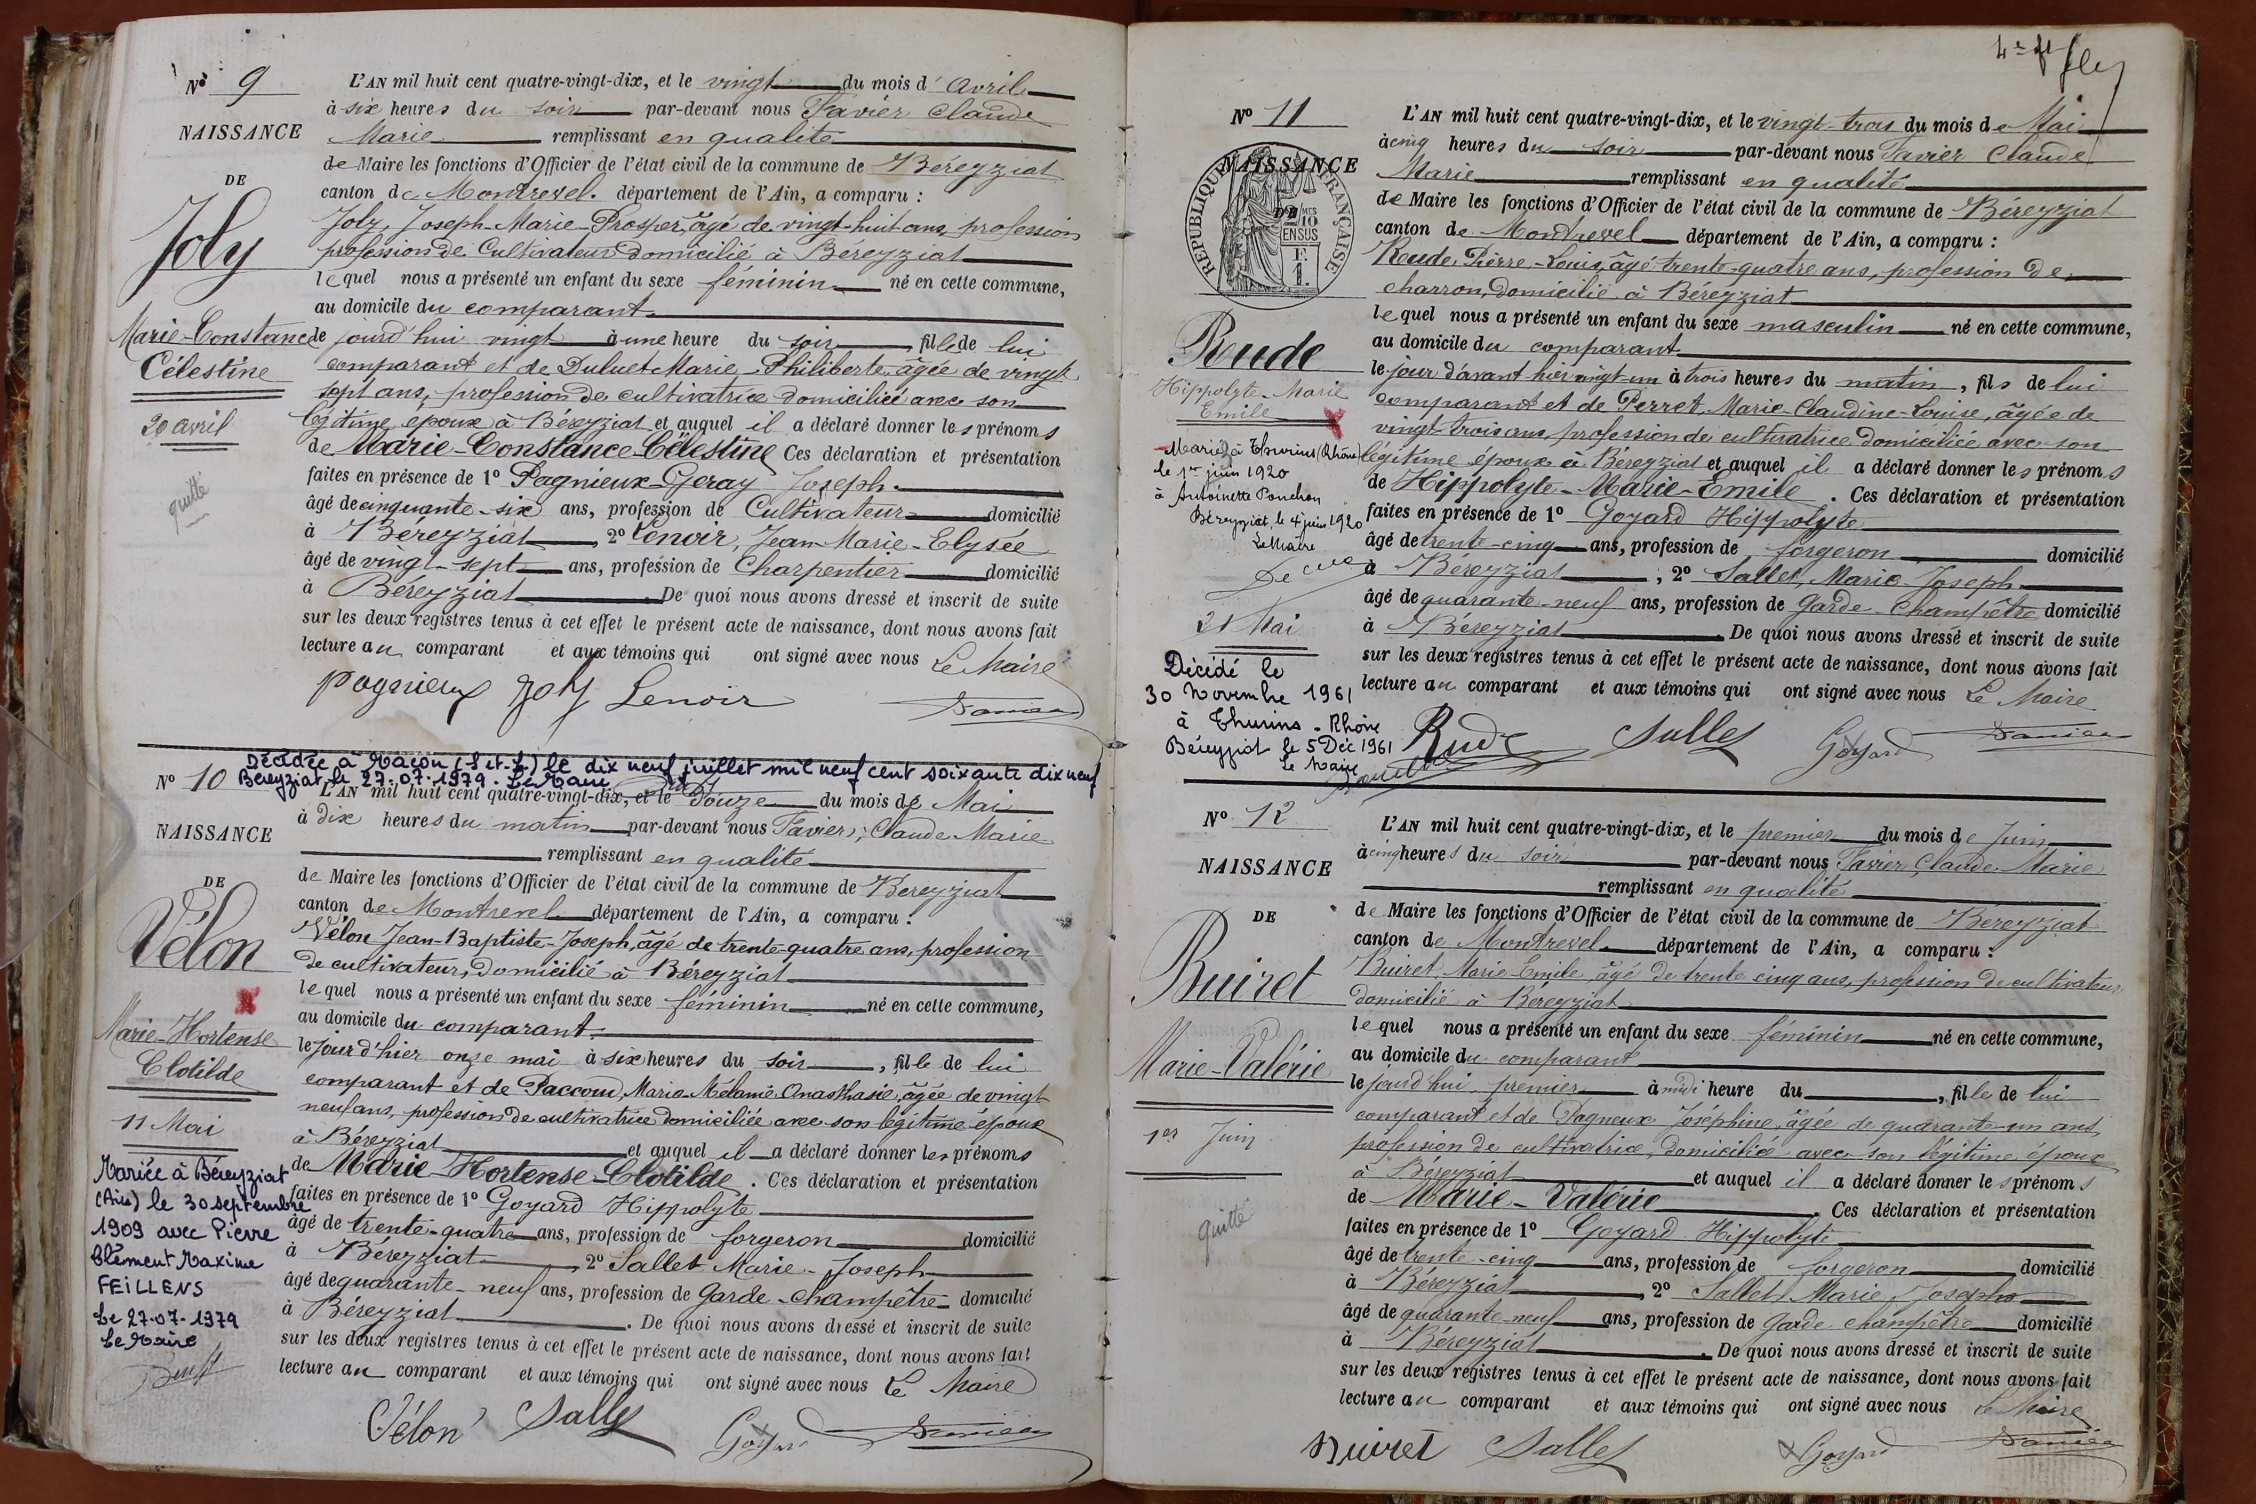 No 9
NAISSANCE
DE
Joly
Marie-Constance
Célestine
20 avril
quitte
L'AN mil huit cent quatre-vingt-dix, et le vingt du mois d'avril
à six heures du soir par-devant nous Favier Claude
Marie remplissant en qualité
de Maire les fonctions d'Officier de l'état civil de la commune de Béreyziat
canton de Montrevel. département de l'Ain, a comparu :
Joly, Joseph-Marie-Prosper, âgé de vingt-huit ans, profession
profession de Cultivateur domicilié à Béreyziat
lequel nous a présenté un enfant du sexe féminin né en cette commune,
au domicile du comparant
le jourd'hui vingt à une heure du soir, fille de lui
comparant et de Duluet Marie-Philiberte, âgée de vingt
sept ans, profession de cultivatrice domiciliée avec son
légitime époux à Béreyziat et auquel il a déclaré donner les prénoms
de Marie-Constance-Célestine Ces déclaration et présentation
faites en présence de 1o Pagnieux-Geray Joseph.
âgé de cinquante-six ans, profession de Cultivateur domicilié
à Béreyziat, 2o Lenoir, Jean-Marie-Elysée
âgé de vingt-sept ans, profession de Charpentier domicilié
à Béreyziat. De quoi nous avons dressé et inscrit de suite
sur les deux registres tenus à cet effet le présent acte de naissance, dont nous avons fait
lecture au comparant et aux témoins qui ont signé avec nous Le Maire
Pagnieux Joly Lenoir Favier
Décédée à Mâcon (S et-L) le dix neuf juillet mil neuf cent soixante dix neuf
Béreyziat le 27.07.1979. Le Maire
No 10
NAISSANCE
DE
Vélon
Marie-Hortense
Clotilde
11 Mai
Mariée à Béreyziat
(Ain) le 30 septembre
1909 avec Pierre
Clément Maxime
FEILLENS
Le 27-07-1979
Le Maire
L'AN mil huit cent quatre-vingt-dix, et le Douze du mois de Mai
à dix heures du matin par-devant nous Favier, Claude Marie
remplissant en qualité
de Maire les fonctions d'Officier de l'état civil de la commune de Béreyziat
canton de Montrevel département de l'Ain, a comparu :
Vélon Jean-Baptiste-Joseph, âgé de trente-quatre ans, profession
de cultivateur, domicilié à Béreyziat
lequel nous a présenté un enfant du sexe féminin né en cette commune,
au domicile du comparant.
le jour d'hier onze mai à six heures du soir, fille de lui
comparant et de Paccoud, Marie-Mélanie Anasthasie, âgée de vingt
neuf ans, profession de cultivatrice domiciliée avec son légitime époux
à Béreyziat et auquel il a déclaré donner les prénoms
de Marie-Hortense-Clotilde. Ces déclaration et présentation
faites en présence de 1o Goyard Hippolyte
âgé de trente-quatre ans, profession de forgeron domicilié
à Béreyziat 2o Sallet Marie-Joseph
âgé de quarante-neuf ans, profession de Garde-champêtre domicilié
à Béreyziat. De quoi nous avons dressé et inscrit de suite
sur les deux registres tenus à cet effet le présent acte de naissance, dont nous avons fait
lecture au comparant et aux témoins qui ont signé avec nous Le Maire
Vélon Sallet Goyard Favier
No 11
NAISSANCE
DE
RÉPUBLIQUE FRANÇAISE
2/10 MES
EN SUS
F.
1.
Reude
Hippolyte-Marie
Emile
Marié à Thurins (Rhône)
le 1er juin 1920
à Antoinette Ponchon
Béreyziat, le 4 juin 1920
Le Maire
21 Mai
Décédé le
30 Novembre 1961
à Thurins-Rhône
Béreyziat le 5 Déc 1961
Le Maire
L'AN mil huit cent quatre-vingt-dix, et le vingt-trois du mois de Mai
à cinq heures du soir par-devant nous Favier Claude
Marie remplissant en qualité
de Maire les fonctions d'Officier de l'état civil de la commune de Béreyziat
canton de Montrevel département de l'Ain, a comparu :
Reude, Pierre-Louis, âgé trente-quatre ans, profession de
charron, domicilié à Béreyziat
lequel nous a présenté un enfant du sexe masculin né en cette commune,
au domicile du comparant
le jour d'avant hier vingt-un à trois heures du matin, fils de lui
comparant et de Perret Marie-Claudine-Louise, âgée de
vingt-trois ans, profession de cultivatrice domiciliée avec son
légitime époux à Béreyziat et auquel il a déclaré donner les prénoms
de Hippolyte-Marie-Emile. Ces déclaration et présentation
faites en présence de 1o Goyard Hippolyte
âgé de trente-cinq ans, profession de forgeron domicilié
à Béreyziat; 2o Sallet, Marie-Joseph
âgé de quarante-neuf ans, profession de Garde-Champêtre domicilié
à Béreyziat. De quoi nous avons dressé et inscrit de suite
sur les deux registres tenus à cet effet le présent acte de naissance, dont nous avons fait
lecture au comparant et aux témoins qui ont signé avec nous Le Maire
Rude Sallet Goyard Favier
No 12
NAISSANCE
DE
Buiret
Marie-Valérie
1er Juin
quitte
L'AN mil huit cent quatre-vingt-dix, et le premier du mois de Juin
à cinq heures du soir par-devant nous Favier, Claude Marie
remplissant en qualité
de Maire les fonctions d'Officier de l'état civil de la commune de Béreyziat
canton de Montrevel. département de l'Ain, a comparu :
Buiret, Marie-Emile, âgé de trente cinq ans, profession de cultivateur
domicilié à Béreyziat
lequel nous a présenté un enfant du sexe féminin né en cette commune,
au domicile du comparant
le jourd'hui premier à midi heure du, fille de lui
comparant et de Pagneux Joséphine, âgée de quarante-un ans,
profession de cultivatrice, domiciliée avec son légitime époux
à Béreyziat et auquel il a déclaré donner les prénoms
de Marie-Valérie. Ces déclaration et présentation
faites en présence de 1o Goyard Hippolyte
âgé de trente-cinq ans, profession de forgeron domicilié
à Béreyziat, 2o Sallet, Marie Joseph
âgé de quarante-neuf ans, profession de Garde champêtre domicilié
à Béreyziat. De quoi nous avons dressé et inscrit de suite
sur les deux registres tenus à cet effet le présent acte de naissance, dont nous avons fait
lecture au comparant et aux témoins qui ont signé avec nous Le Maire
Buiret Sallet Goyard Favier